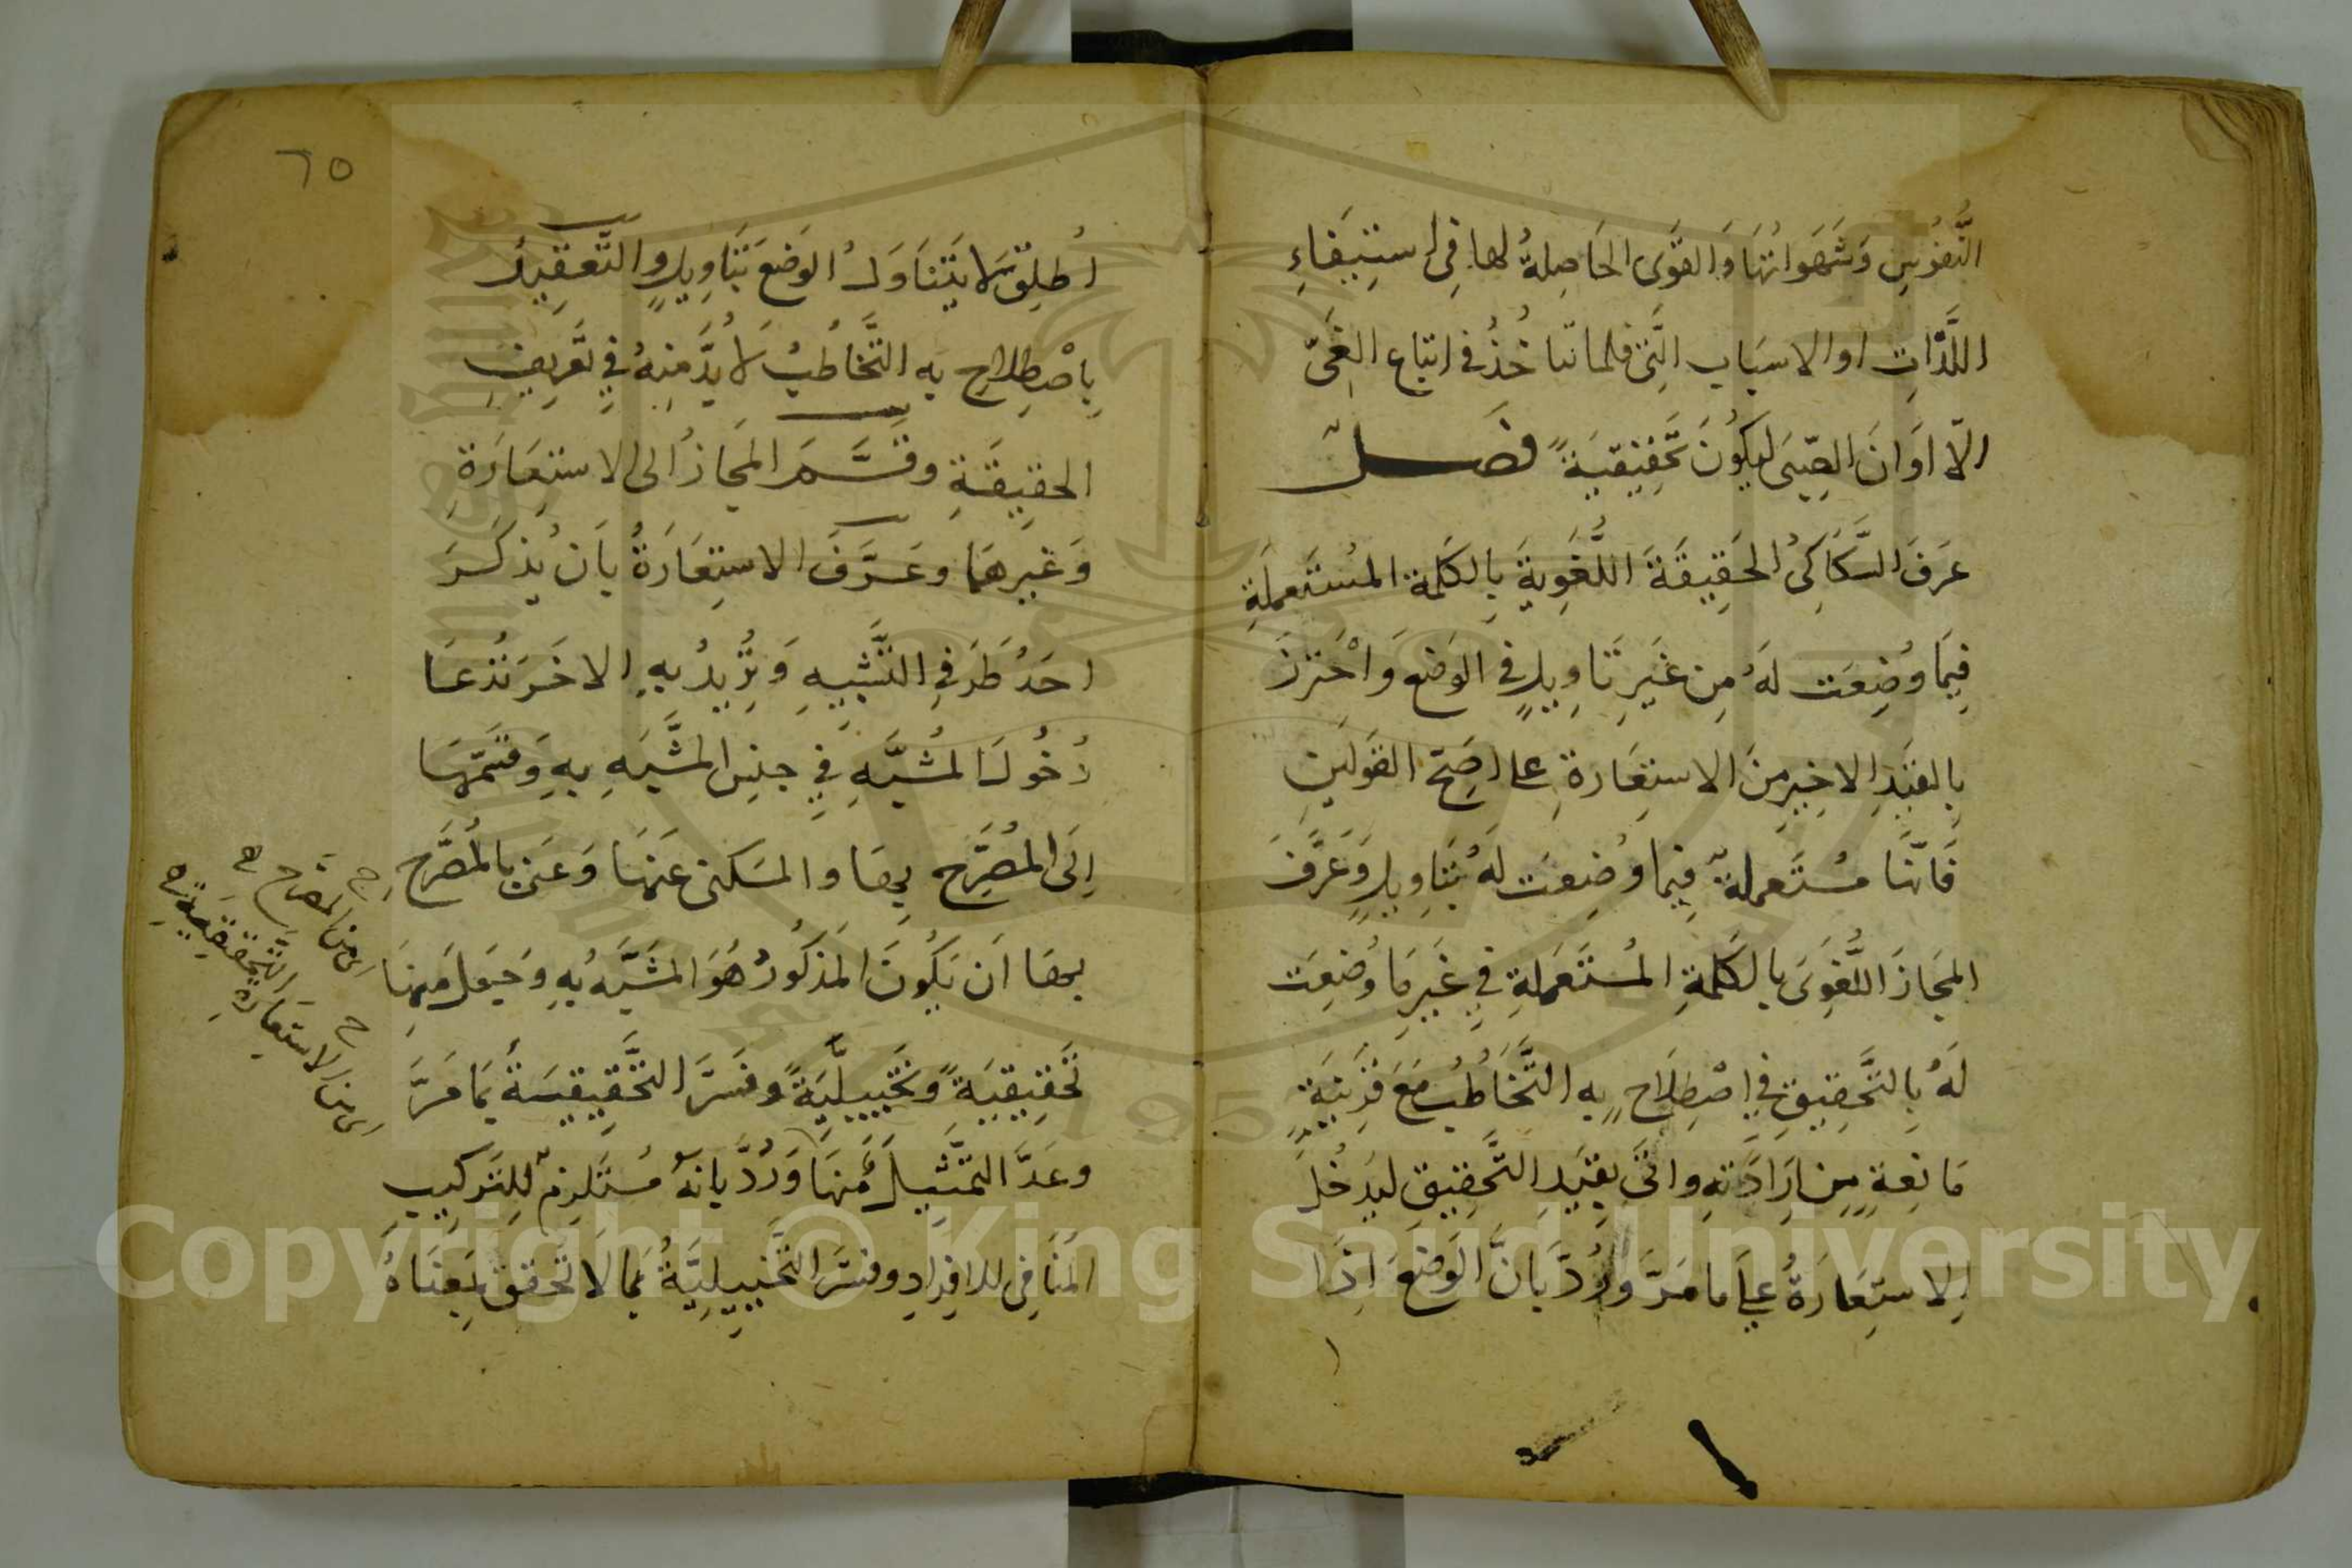 النُّفُوسِ وَشَهَوَاتُهَا وَالقُوَى الحَاصِلَةُ لها فِى استِيفَاءِ
اللَّذَّاتِ او الاسبَاب الَّتِى قلما تتا خُذُ فى اتباع الغَىّ
الّا اوَانَ الصِّبَى ليكُونَ تَحقِيقيَةً فصل
عَرَفَ السَّكَّاكِىُ الحَقِيقَةَ اللُّغَوِيةَ بِالكَلمة المُستَعملَةِ
فِيمَا وُضِعَت لَهُ مِن غَيرِ تَاوِيلٍ فِى الوَضعِ وَاحْتَرزَ
بِالقَيدِ الاخِيرِ مِنَ الاستِعَارةِ على اصَحّ القَولَينِ
فَانّهَا مُستَعملةٌ فِيما وُضِعَت لَهُ بتَاوِيلٍ وَعَرَّفَ
المَجَازَ اللُّغَوِىَ بالكَلمَةِ المُستَعمَلةِ فِى غَيرِ مَا وُضِعَت
لَهُ بِالتَّحقِيقِ فِى اصْطِلَاحٍ به التَّخَاطُبُ مَعَ قَرِينَةٍ
مَانِعَةٍ مِن اِرَادَتهِ واتَى بِقَيدِ التَّحقِيقِ ليَدخُلَ
الاستِعَارَةُ على ما مَرَّ ورُدَّ بَانَّ الوَضعَ اِذَا
٦٥
اُطلِقَ لا يَتَنَاوَلُ الوَضعَ بتَاوِيلٍ والتَّقيِيدُ
بِاصْطِلاحٍ به التَّخَاطُبُ لَا بُدَّ مِنهُ فِى تَعرِيفِ
الحقِيقَةِ وقَسَّمَ المَجَازُ الى الاستِعَارَةِ
وَغَيرِهَا وعَرَّفَ الاستِعَارَةُ بَان يُذكَرَ
احَدُ طَرَفِى التَّشبِيهِ وَتُرِيدُ بِهِ الاخَرَ مُدّعَيا
دُخُولَ المُشَبَّهِ فِى جِنسِ المُشَبَّهِ بِهِ وَقسَّمَهَا
اِلَى المُصَرَّحِ بِهَا والمَكنى عَنهَا وَعَنى بالمُصَرَّحِ
بِهَا اَن يَكُونَ المَذكُورُ هُوَ المُشَبَّهُ بِهِ وَجَعَلَ مِنهَا
تَحقِيقيَةً وتَخيِيلِيَّةً وفَسَّرَ التَّحقِيقيَةُ بمَا مَرَّ
وعَدَّ التَّمثِيلَ مِنهَا وَرُدَّ بانهُ مُستَلزِمٌ لِلتَركِيبِ
المُنَافِى للافرَادِ وفَسَّرَ التَّخيِيلِيَّةُ بمَا لَا تَحَقّقَ لمَعنَاهُ
اى من المصرح
التحقيقية
اى من الاستعارة